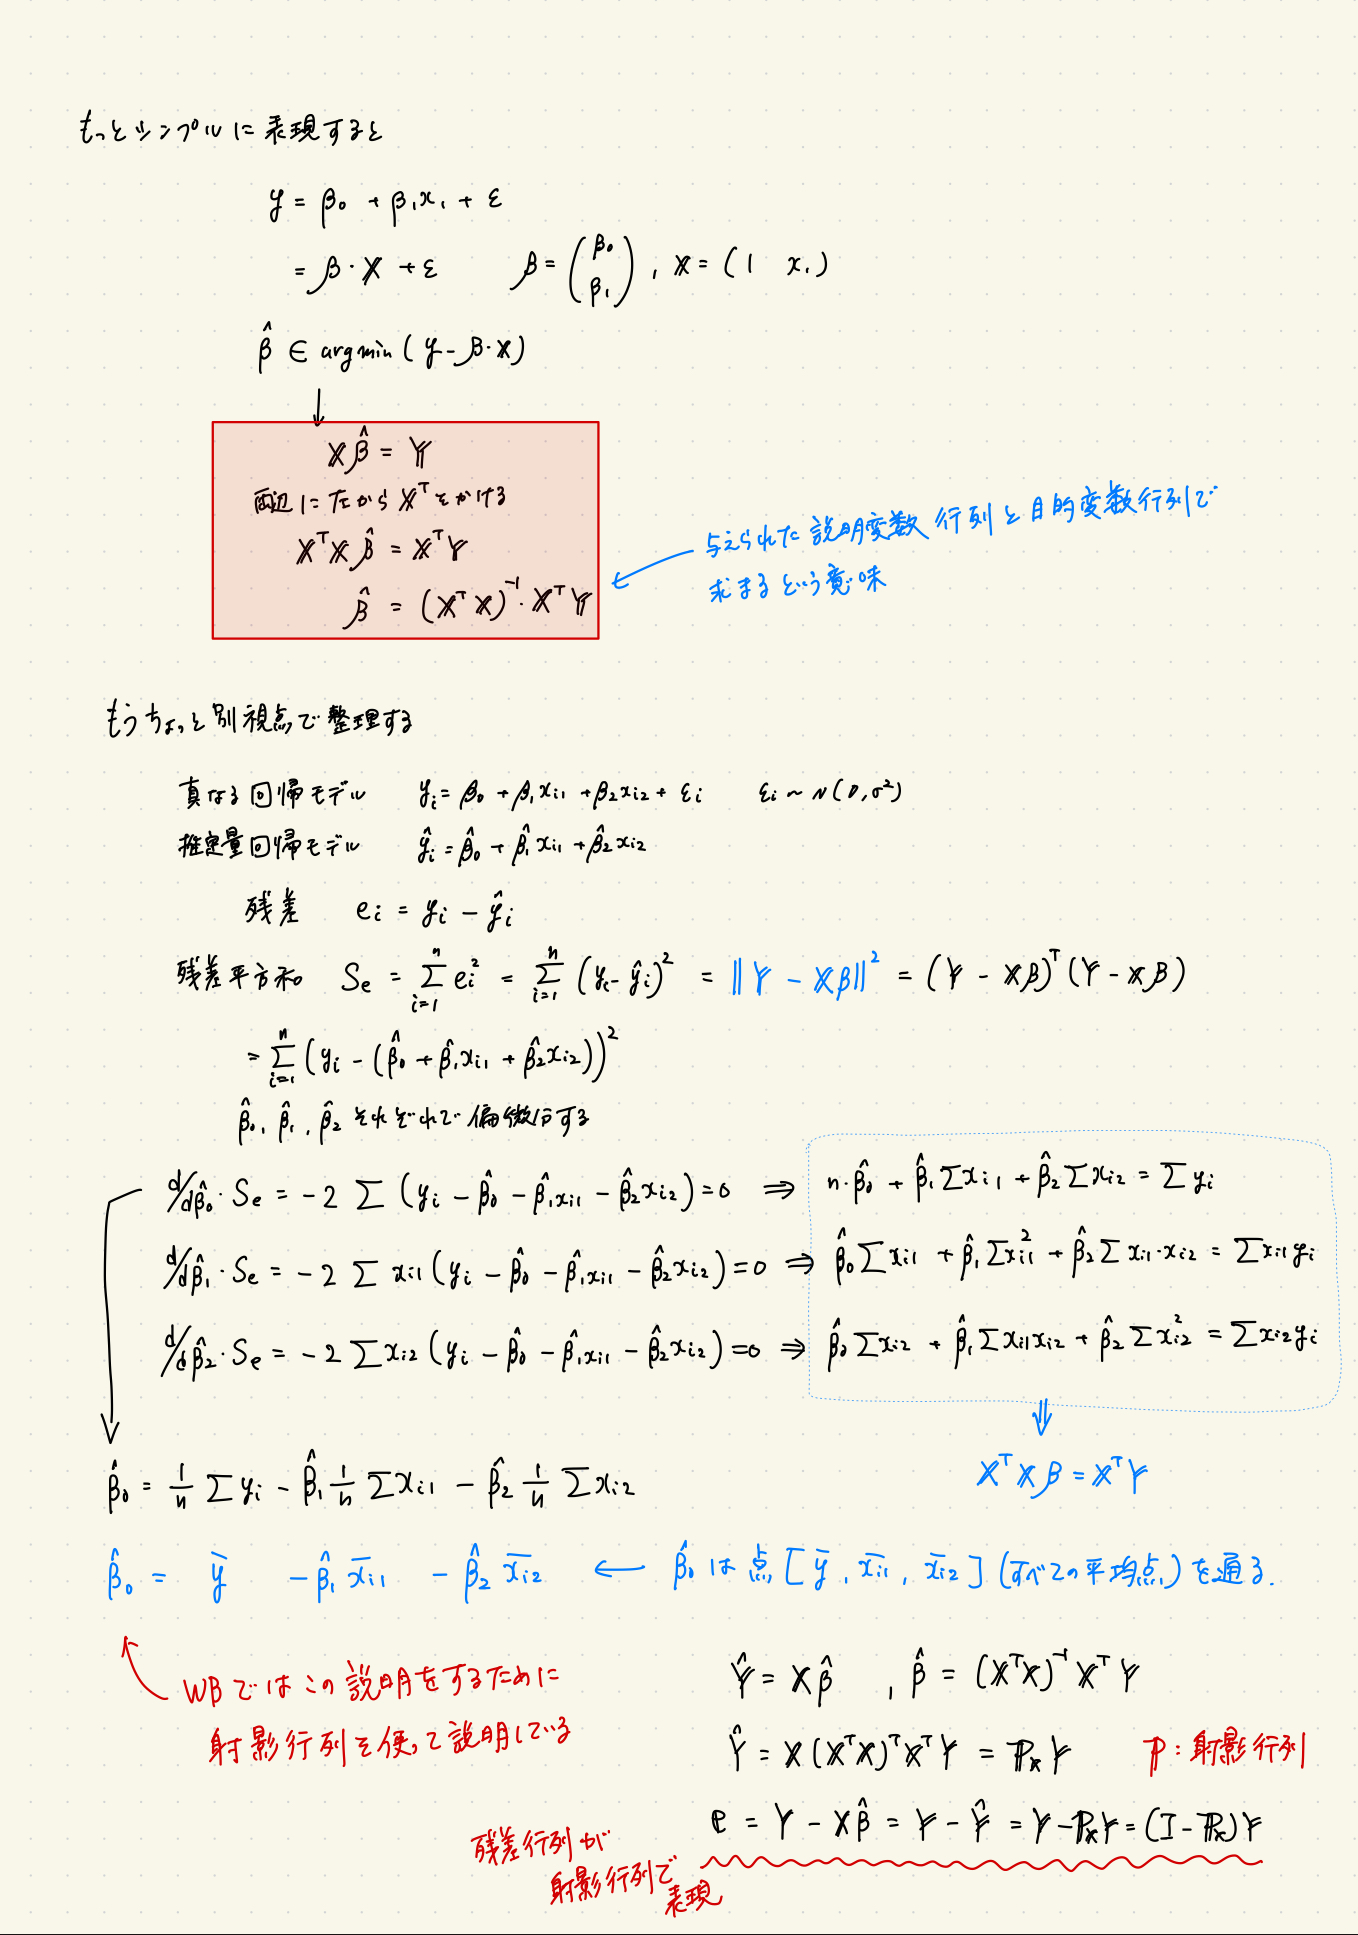 もっとシンプルに表現すると
y = β₀ + β₁x₁ + ε
= β・X + ε　　β = (β₀ β₁) , X = (1　x₁)
β̂ ∈ argmin (y - β・X)
↓
Xβ̂ = Y
両辺に左から Xᵀ をかける
XᵀXβ̂ = XᵀY
β̂ = (XᵀX)⁻¹・XᵀY
← 与えられた説明変数行列と目的変数行列で
求まるという意味
もうちょっと別視点で整理する
真なる回帰モデル　yᵢ = β₀ + β₁xᵢ₁ + β₂xᵢ₂ + εᵢ　　εᵢ ~ N(0, σ²)
推定量回帰モデル　ŷᵢ = β̂₀ + β̂₁xᵢ₁ + β̂₂xᵢ₂
残差　eᵢ = yᵢ - ŷᵢ
残差平方和　Sₑ = Σⁿᵢ₌₁ eᵢ² = Σⁿᵢ₌₁ (yᵢ - ŷᵢ)² = ||Y - Xβ||² = (Y - Xβ)ᵀ(Y - Xβ)
= Σⁿᵢ₌₁ (yᵢ - (β̂₀ + β̂₁xᵢ₁ + β̂₂xᵢ₂))²
β̂₀, β̂₁, β̂₂ それぞれで偏微分する
d/dβ̂₀・Sₑ = -2 Σ (yᵢ - β̂₀ - β̂₁xᵢ₁ - β̂₂xᵢ₂) = 0 ⇒ n・β̂₀ + β̂₁Σxᵢ₁ + β̂₂Σxᵢ₂ = Σyᵢ
d/dβ̂₁・Sₑ = -2 Σ xᵢ₁(yᵢ - β̂₀ - β̂₁xᵢ₁ - β̂₂xᵢ₂) = 0 ⇒ β̂₀Σxᵢ₁ + β̂₁Σxᵢ₁² + β̂₂Σxᵢ₁・xᵢ₂ = Σxᵢ₁yᵢ
d/dβ̂₂・Sₑ = -2 Σxᵢ₂(yᵢ - β̂₀ - β̂₁xᵢ₁ - β̂₂xᵢ₂) = 0 ⇒ β̂₀Σxᵢ₂ + β̂₁Σxᵢ₁xᵢ₂ + β̂₂Σxᵢ₂² = Σxᵢ₂yᵢ
⇓
XᵀXβ = XᵀY
β̂₀ = 1/n Σyᵢ - β̂₁ 1/n Σxᵢ₁ - β̂₂ 1/n Σxᵢ₂
β̂₀ = ȳ - β̂₁x̄ᵢ₁ - β̂₂x̄ᵢ₂ ← β̂₀は点[ȳ, x̄ᵢ₁, x̄ᵢ₂](すべての平均点)を通る.
WBではこの説明をするために
射影行列を使って説明している
Ŷ = Xβ̂　, β̂ = (XᵀX)⁻¹XᵀY
Ŷ = X(XᵀX)ᵀXᵀY = PₓY　　P : 射影行列
e = Y - Xβ̂ = Y - Ŷ = Y - PₓY = (I - Pₓ)Y
残差行列が
射影行列で
表現